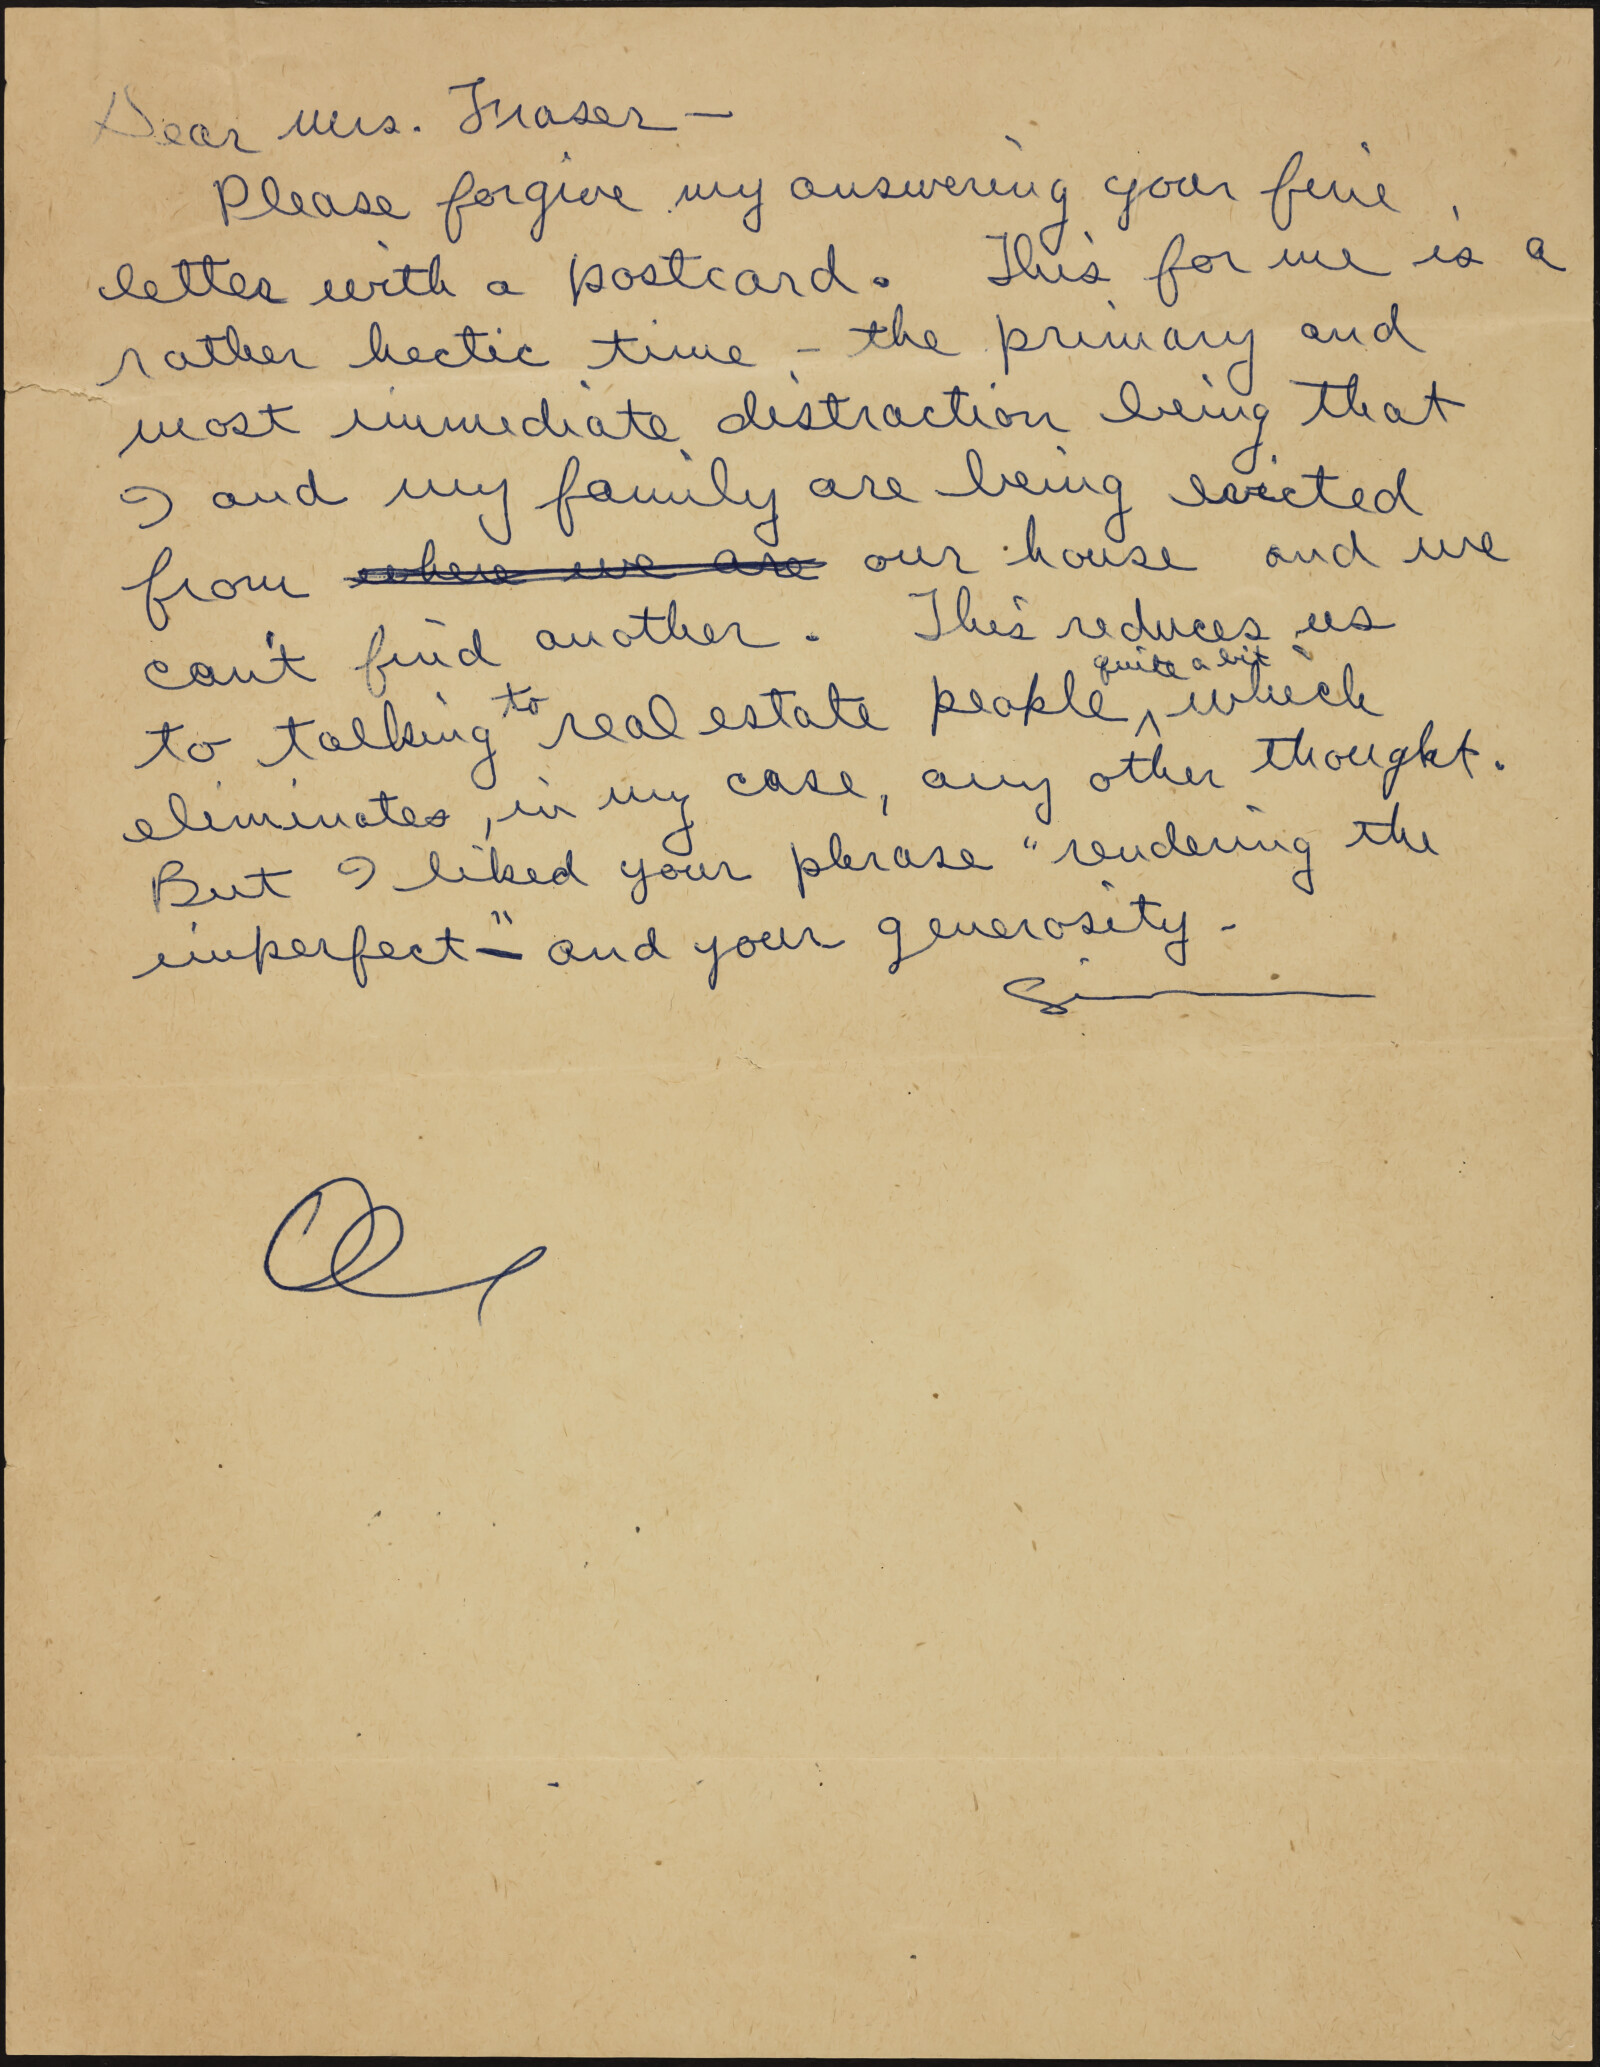 Dear Mrs. Fraser —
Please forgive my answering your fine
letter with a postcard. This for me is a
rather hectic time – the primary and
most immediate distraction being that
I and my family are being evicted
from where we are our house and we
can't find another. This reduces us
to talking to real estate people quite a bit, which
eliminates, in my case, any other thought.
But I liked your phrase "rendering the
imperfect—" and your generosity –